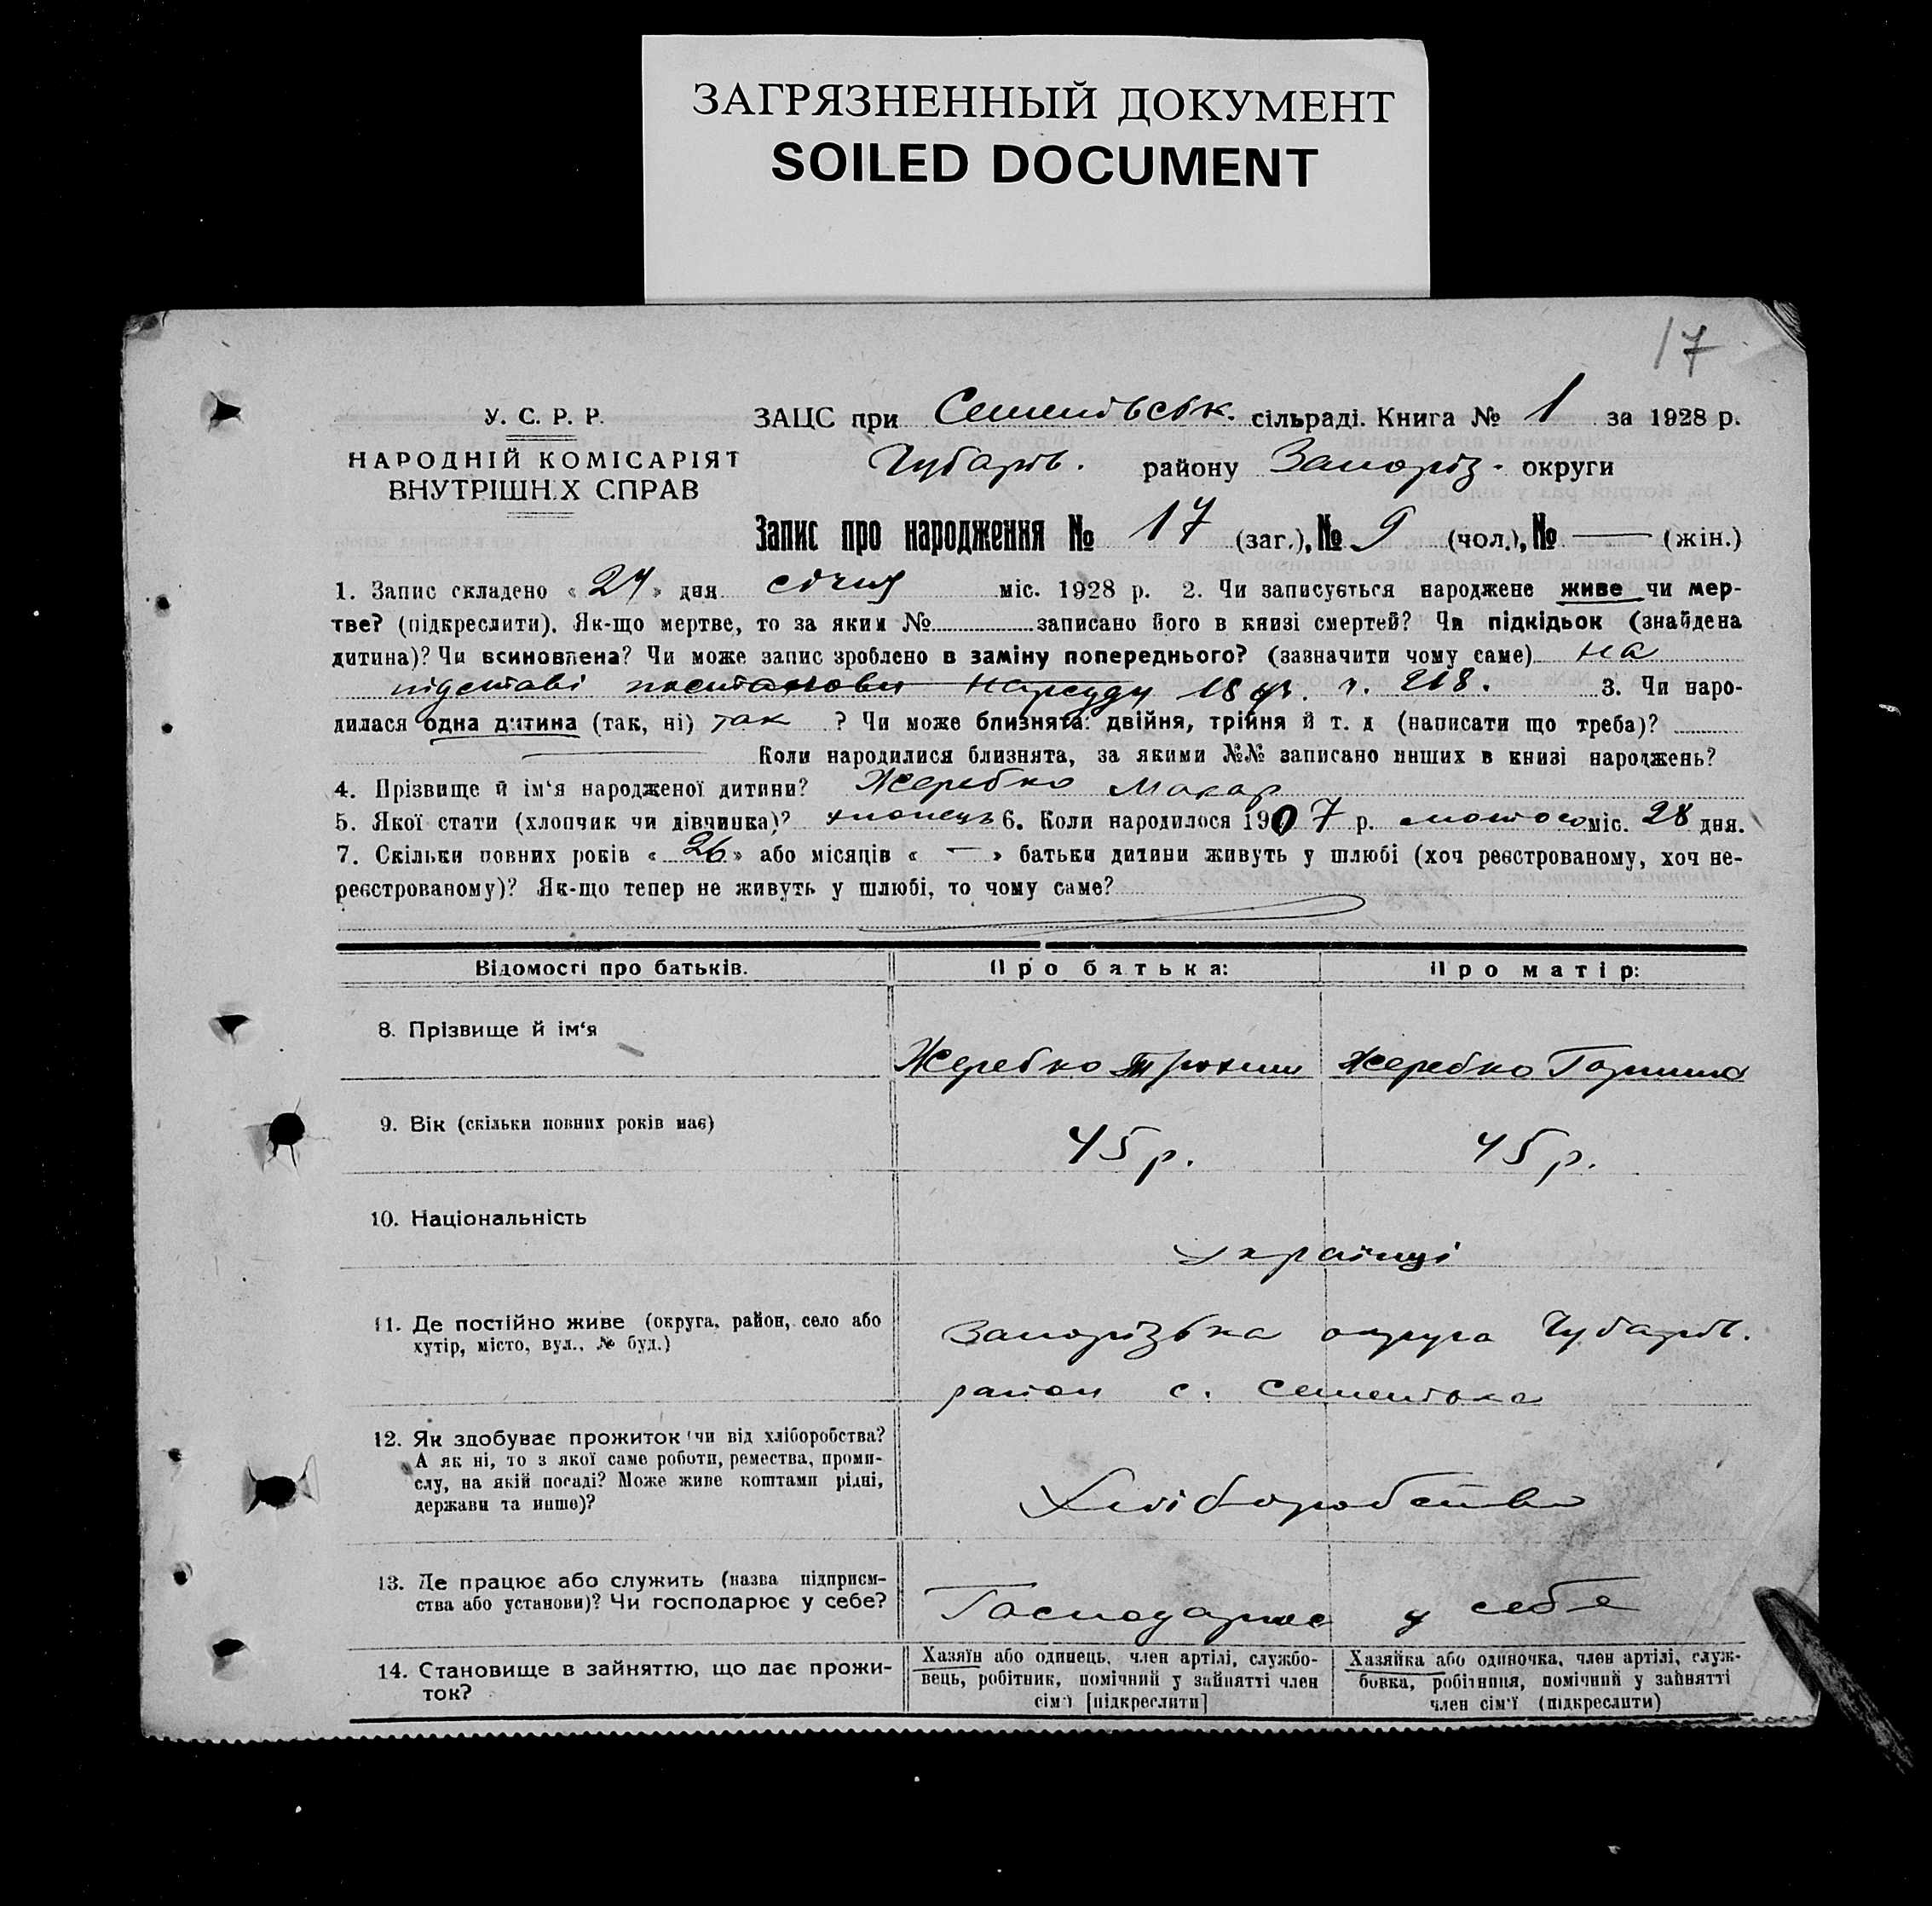 ЗАГРЯЗНЕННЫЙ ДОКУМЕНТ
SOILED DOCUMENT
17
У. С. Р. Р.
НАРОДНІЙ КОМІСАРІЯТ
ВНУТРІШН.Х СПРАВ
ЗАЦС при Семенівськ. сільраді. Книга № 1 за 1928 р.
Чубарів. району Запоріз. округи
Запис про народження № 17 (заг.), № 9 (чол.), № — (жін.)
1. Запис складено « 24 » дня січня міс. 1928 р. 2. Чи записується народжене живе чи мер-
тве? (підкреслити). Як-що мертве, то за яким № записано його в книзі смертей? Чи підкідьок (знайдена
дитина)? Чи всиновлена? Чи може запис зроблено в заміну попереднього? (зазначити чому саме) на
підставі постанови Нарсуду 18 ч. 218. 3. Чи наро-
дилася одна дитина (так, ні) так ? Чи може близнята: двійня, трійня й т. д (написати що треба)?
Коли народилися близнята, за якими №№ записано инших в книзі народжень?
4. Прізвище й ім'я народженої дитини? Жеребко Макар
5. Якої стати (хлопчик чи дівчинка)? хлопець 6. Коли народилося 1907 р. лютого міс. 28 дня.
7. Скільки повних років « 26 » або місяців « — » батьки дитини живуть у шлюбі (хоч реєстрованому, хоч не-
реєстрованому)? Як-що тепер не живуть у шлюбі, то чому саме?
Відомості про батьків. Про батька: Про матір:
8. Прізвище й ім'я
Жеребко Трохим Жеребко Горпина
9. Вік (скільки повних років має)
45 р. 45 р.
10. Національність
Українці
11. Де постійно живе (округа, район, село або
хутір, місто, вул., № буд.)
Запорізька округа Чубарів.
район с. Семенівка
12. Як здобуває прожиток (чи від хліборобства?
А як ні, то з якої саме роботи, ремества, проми-
слу, на якій посаді? Може живе коштами рідні,
держави та инше)?
Хліборобство
13. Де працює або служить (назва підприєм-
ства або установи)? Чи господарює у себе?
Господарює у себе
14. Становище в зайняттю, що дає прожи-
ток?
Хазяїн або одинець, член артілі, службо-
вець, робітник, помічний у зайнятті член
сім'ї [підкреслити]
Хазяйка або одиночка, член артілі, служ-
бовка, робітниця, помічний у зайнятті
член сім'ї (підкреслити)